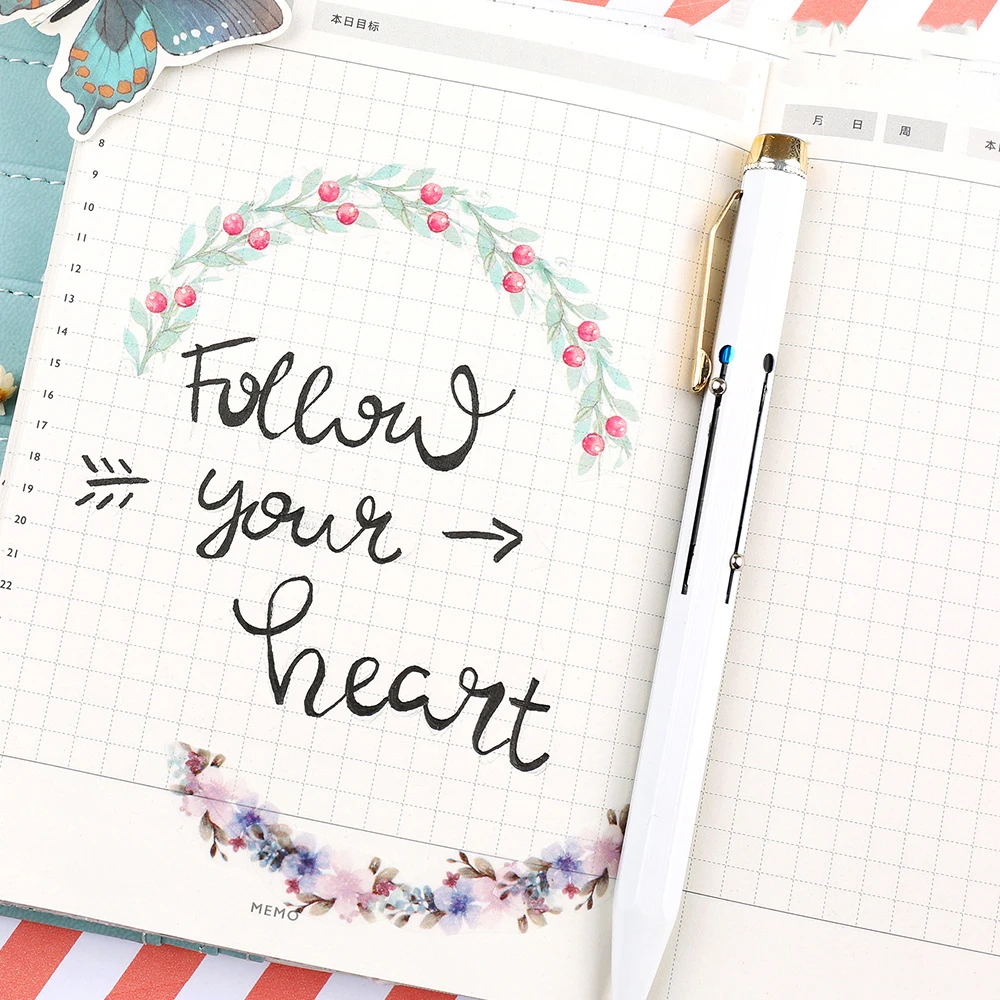 本日目标
月 日 周
8
9
10
11
12
13
14
15
16
17
18
19
20
21
22
Follow
your
heart
MEMO